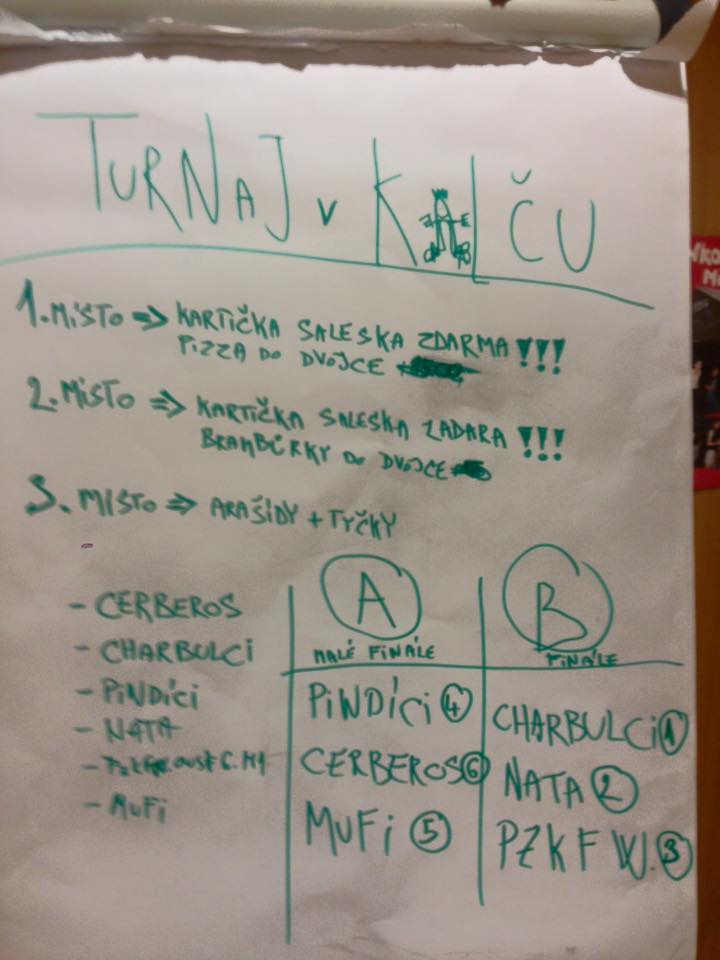 TURNAJ v KALČU
1. MÍSTO => KARTIČKA SALESKA ZDARMA!!!
PIZZA DO DVOJCE
2. MÍSTO => KARTIČKA SALESKA ZADARA!!!
BRAMBŮRKY DO DVOJCE
3. MÍSTO => ARAŠÍDY + TYČKY
- CERBEROS
- CHARBULCI
- PiNDíCi
- NATA
- MUFi
A
MALÉ FINÁLE
PiNDíCi 4
CERBEROS 6
MUFi 5
B
FINÁLE
CHARBULCi 1
NATA 2
PZKFW. 3